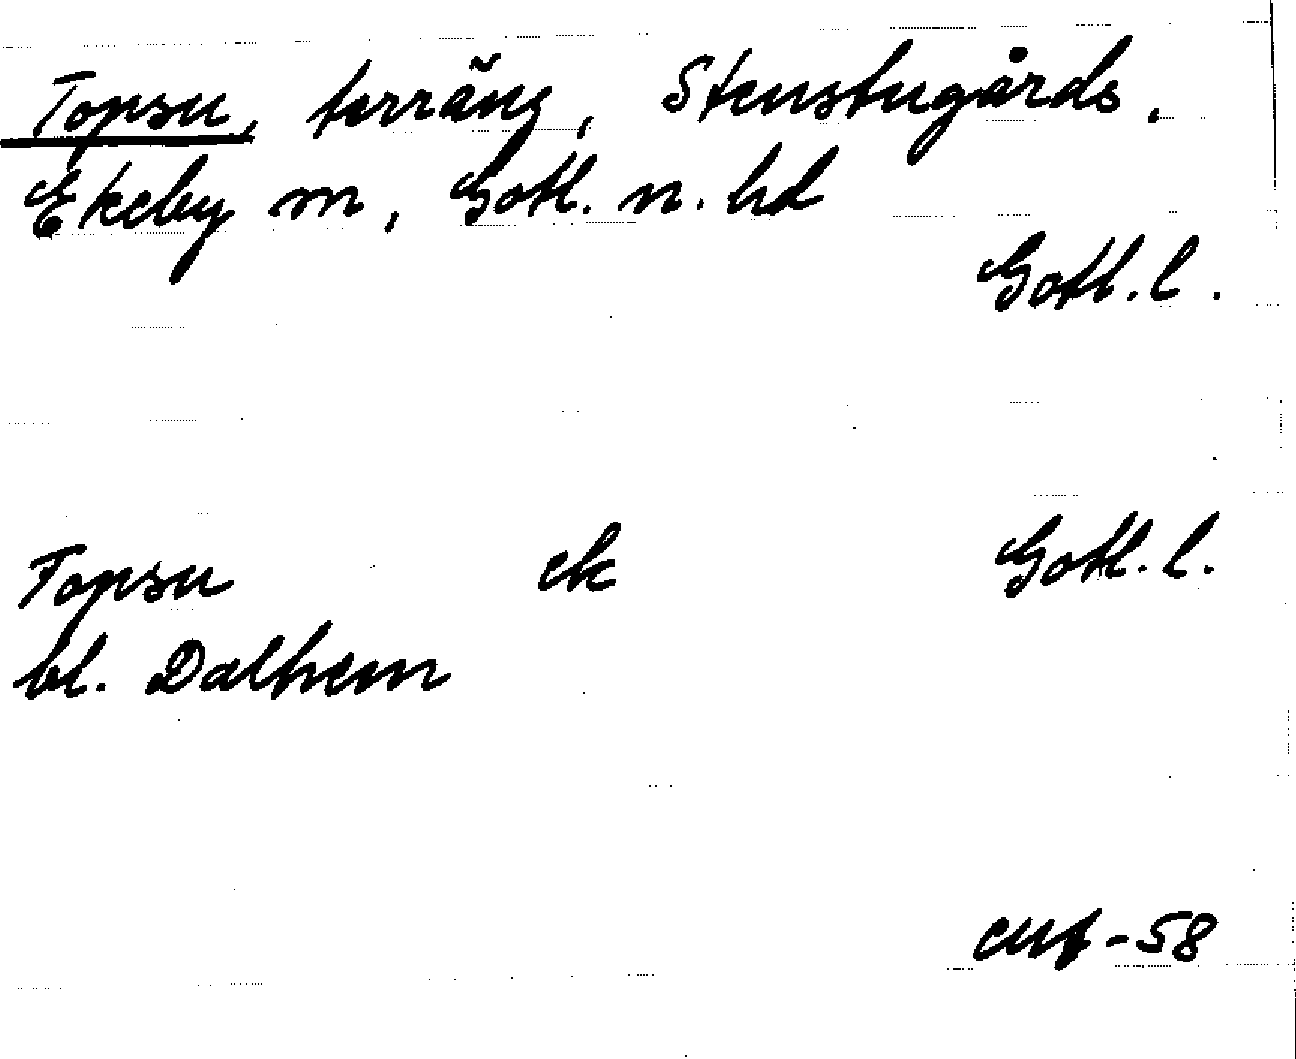 Topsu, terräng, Stenstugårds.
Ekeby sn, Gotl. n. hd
Gotl. l.
Topsu ek Gotl. l.
bl. Dalhem
-58